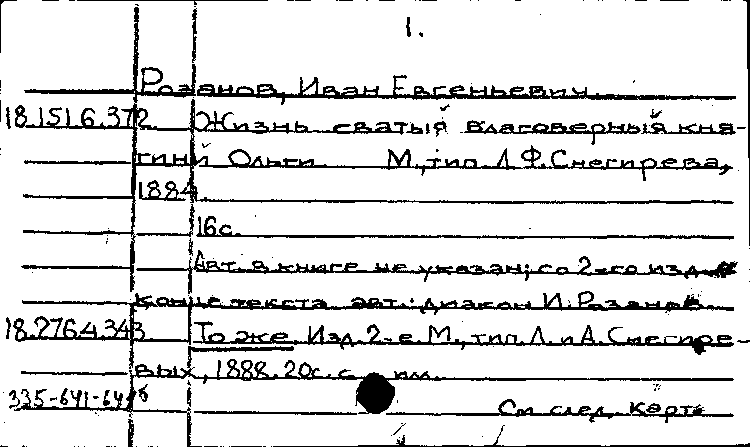 1.
Розанов, Иван Евгеньевич.
18.151.6.372 Жизнь святый благоверный кня-
гиний Ольги. М., тип. Л.Ф.Снегирева,
1884.
16с.
Авт. в книге не указан; со 2-го изд. в
конце текста авт.: диакон И. Розанов.
18.276.4.343 То же. Изд. 2-е. М., тип. Л. и А. Снегире-
вых, 1888. 20с. с илл.
См след. карт.